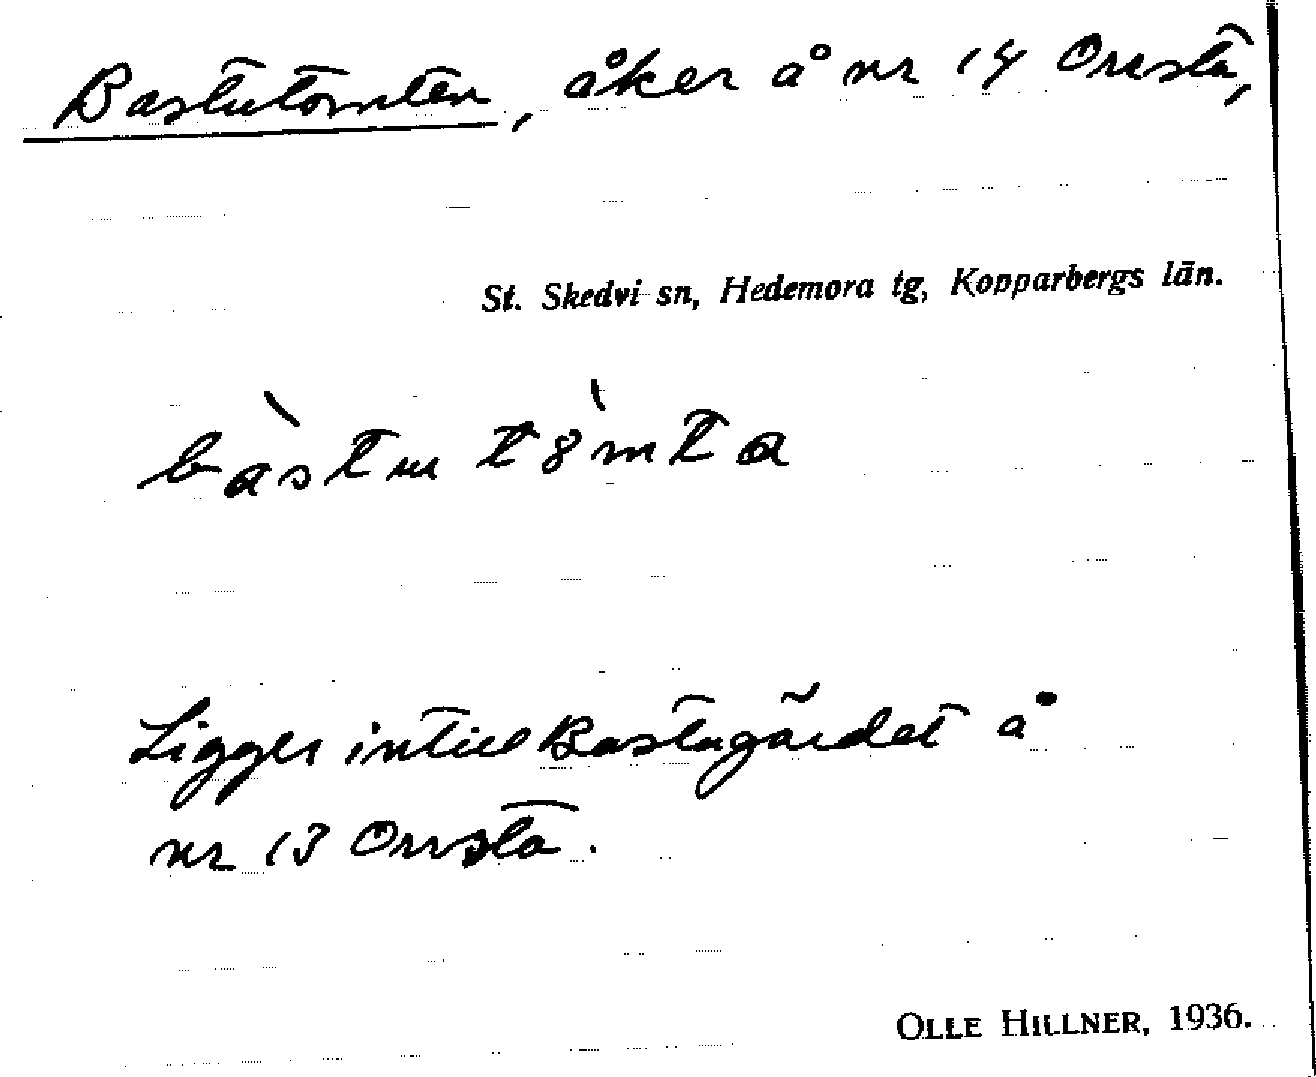 Bastutomten, åker å nr 14 Orrsta,
St. Skedvi sn, Hedemora tg, Kopparbergs län.
bàstu t8̀mta
Ligger intill Bastugärdet å
nr 13 Orrsta.
OLLE HILLNER, 1936.